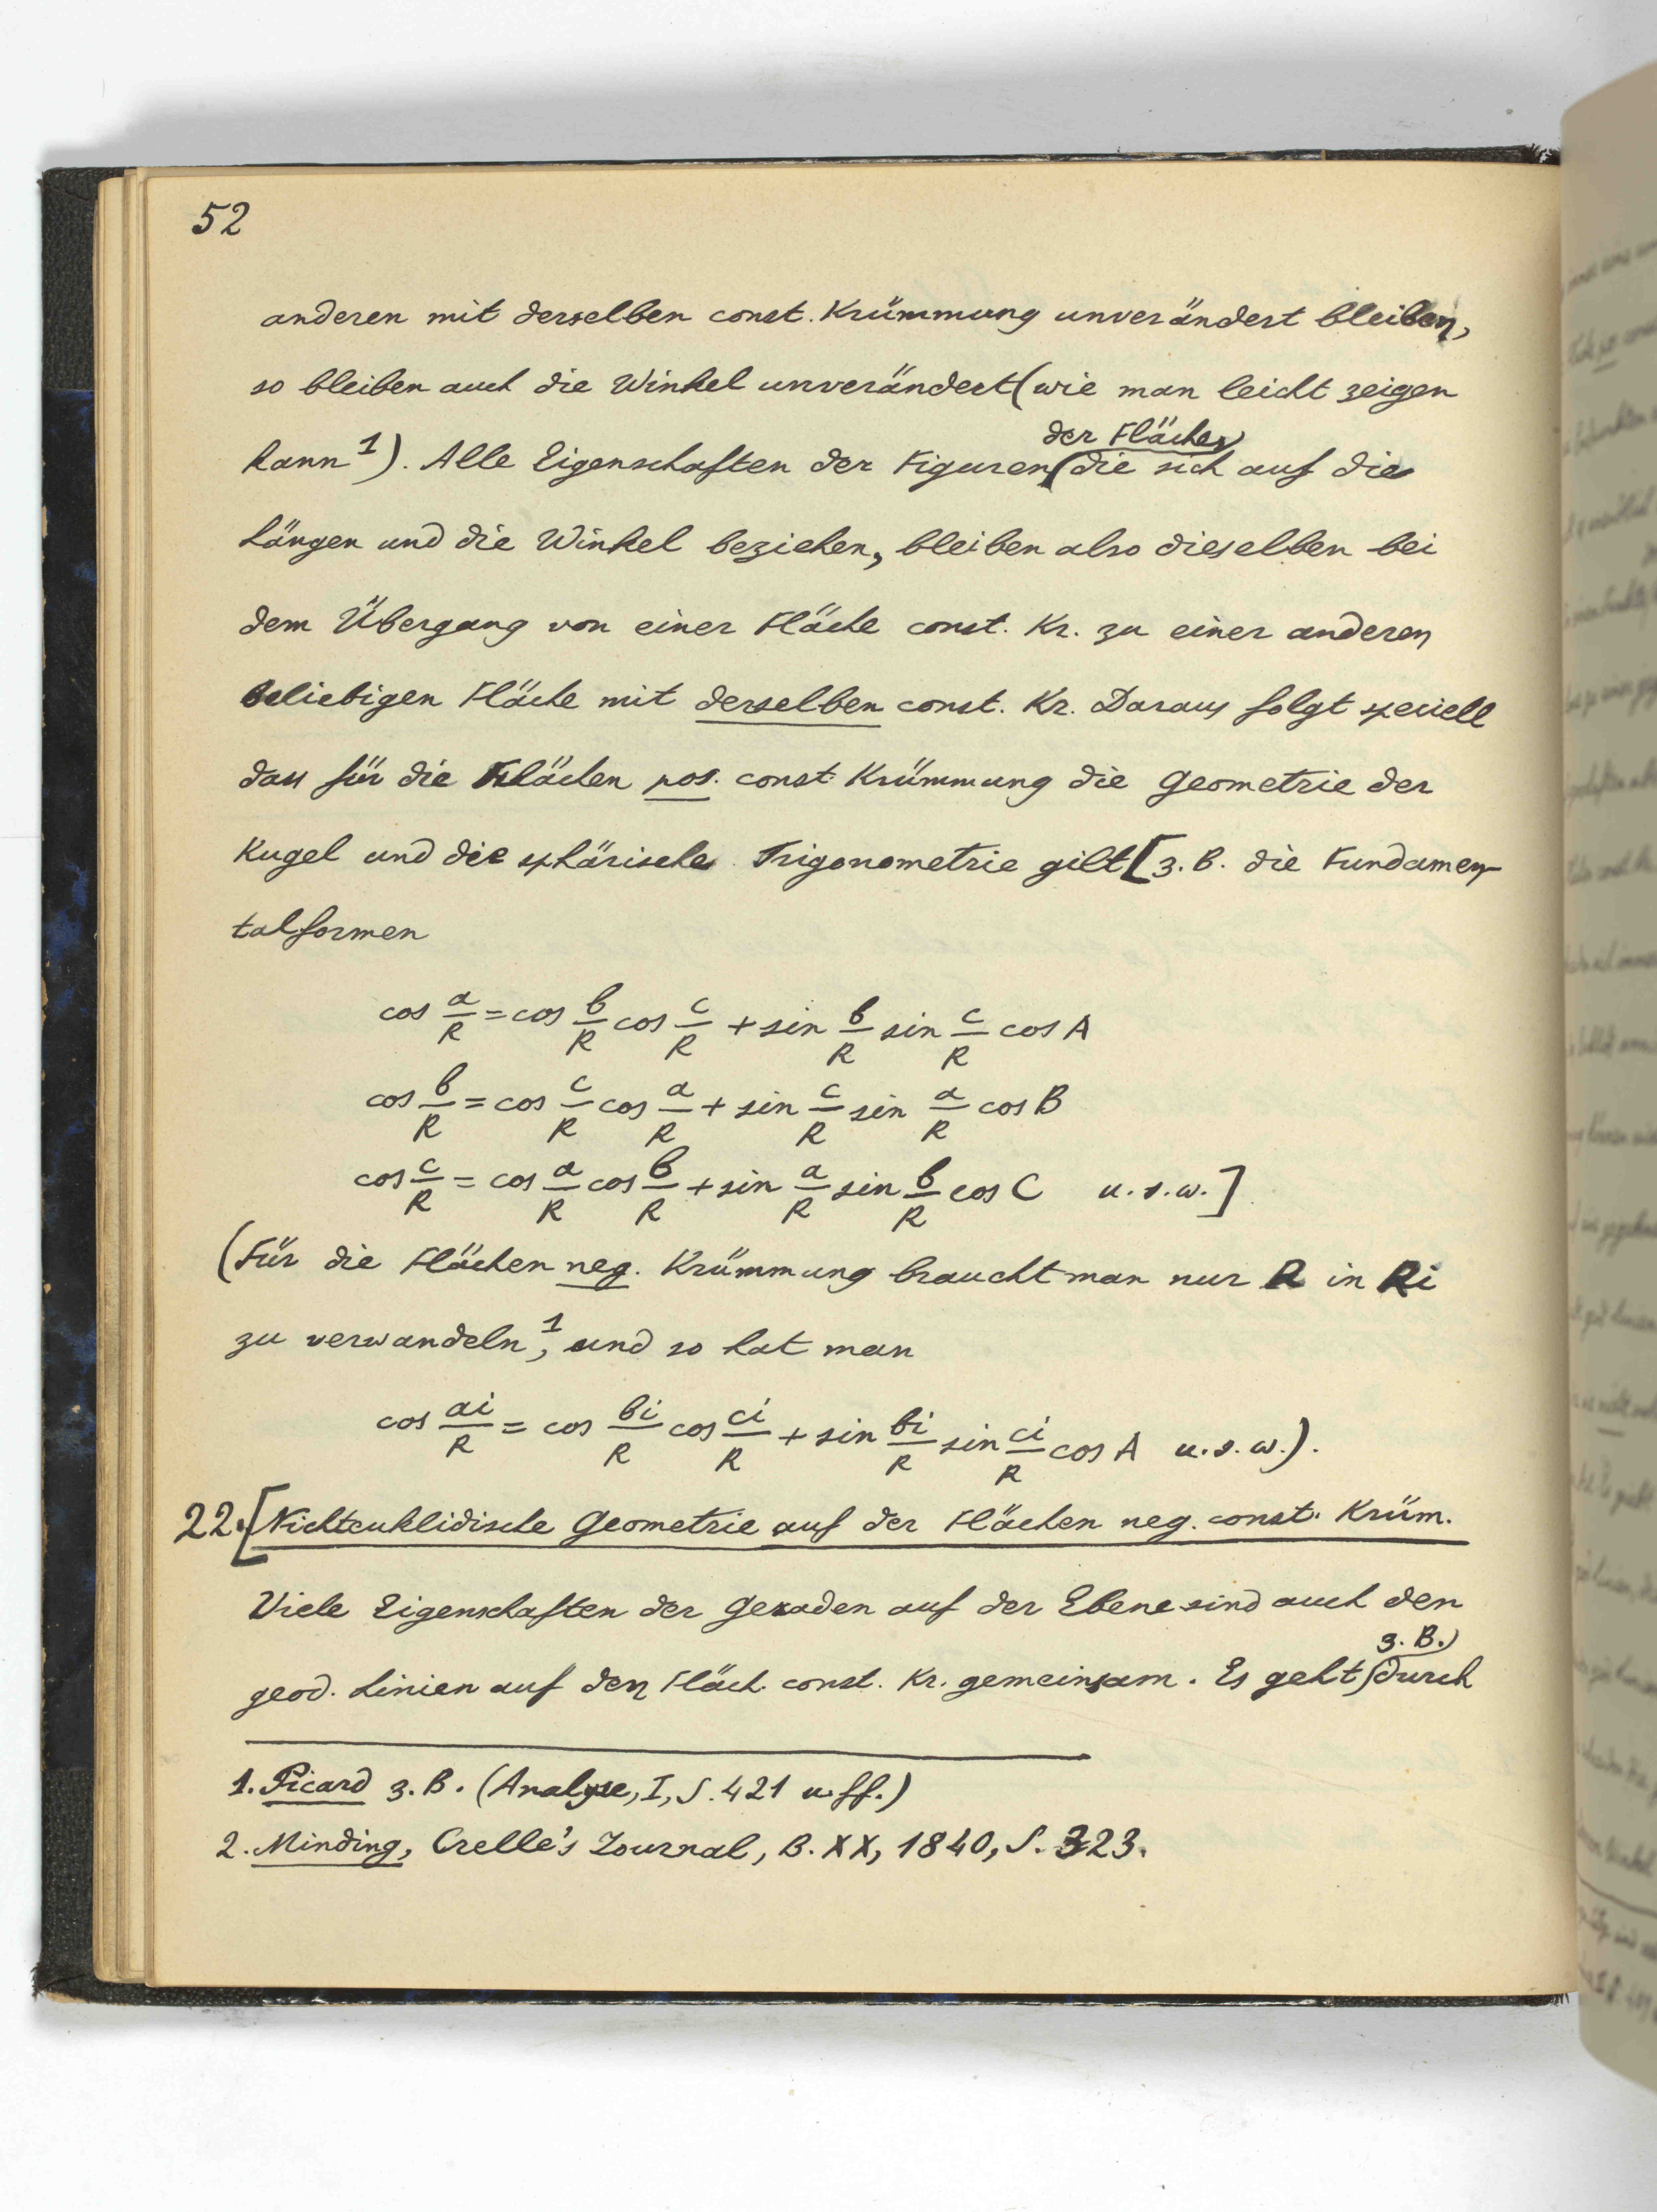 52
anderen mit derselben const. Krümmung unverändert bleiben,
so bleiben auch die Winkel unverändert (wie man leicht zeigen
der Flächen
kann 1). Alle Eigenschaften der Figuren die sich auf die
Längen und die Winkel beziehen, bleiben also dieselben bei
dem Übergang von einer Fläche const. Kr. zu einer anderen
beliebigen Fläche mit derselben const. Kr. Daraus folgt speciell
dass für die Flächen pos. const. Krümmung die Geometrie der
Kugel und die sphärische Trigonometrie gilt [z. B. die Fundamen-
talformen
cos a/R = cos b/R cos c/R + sin b/R sin c/R cos A
cos b/R = cos c/R cos a/R + sin c/R sin a/R cos B
cos c/R = cos a/R cos b/R + sin a/R sin b/R cos C u.s.w.]
(Für die Flächen neg. Krümmung braucht man nur R in Ri
zu verwandeln 1, und so hat man
cos ai/R = cos bi/R cos ci/R + sin bi/R sin ci/R cos A u.s.w.).
22. [Nichteuklidische Geometrie auf der Flächen neg. const. Krüm.
Viele Eigenschaften der Geraden auf der Ebene sind auch den
z. B.
geod. Linien auf den Fläch. const. Kr. gemeinsam. Es geht durch
1. Picard z. B. (Analyse, I, S. 421 u. ff.)
2. Minding, Crelle's Journal, B. XX, 1840, S. 323.